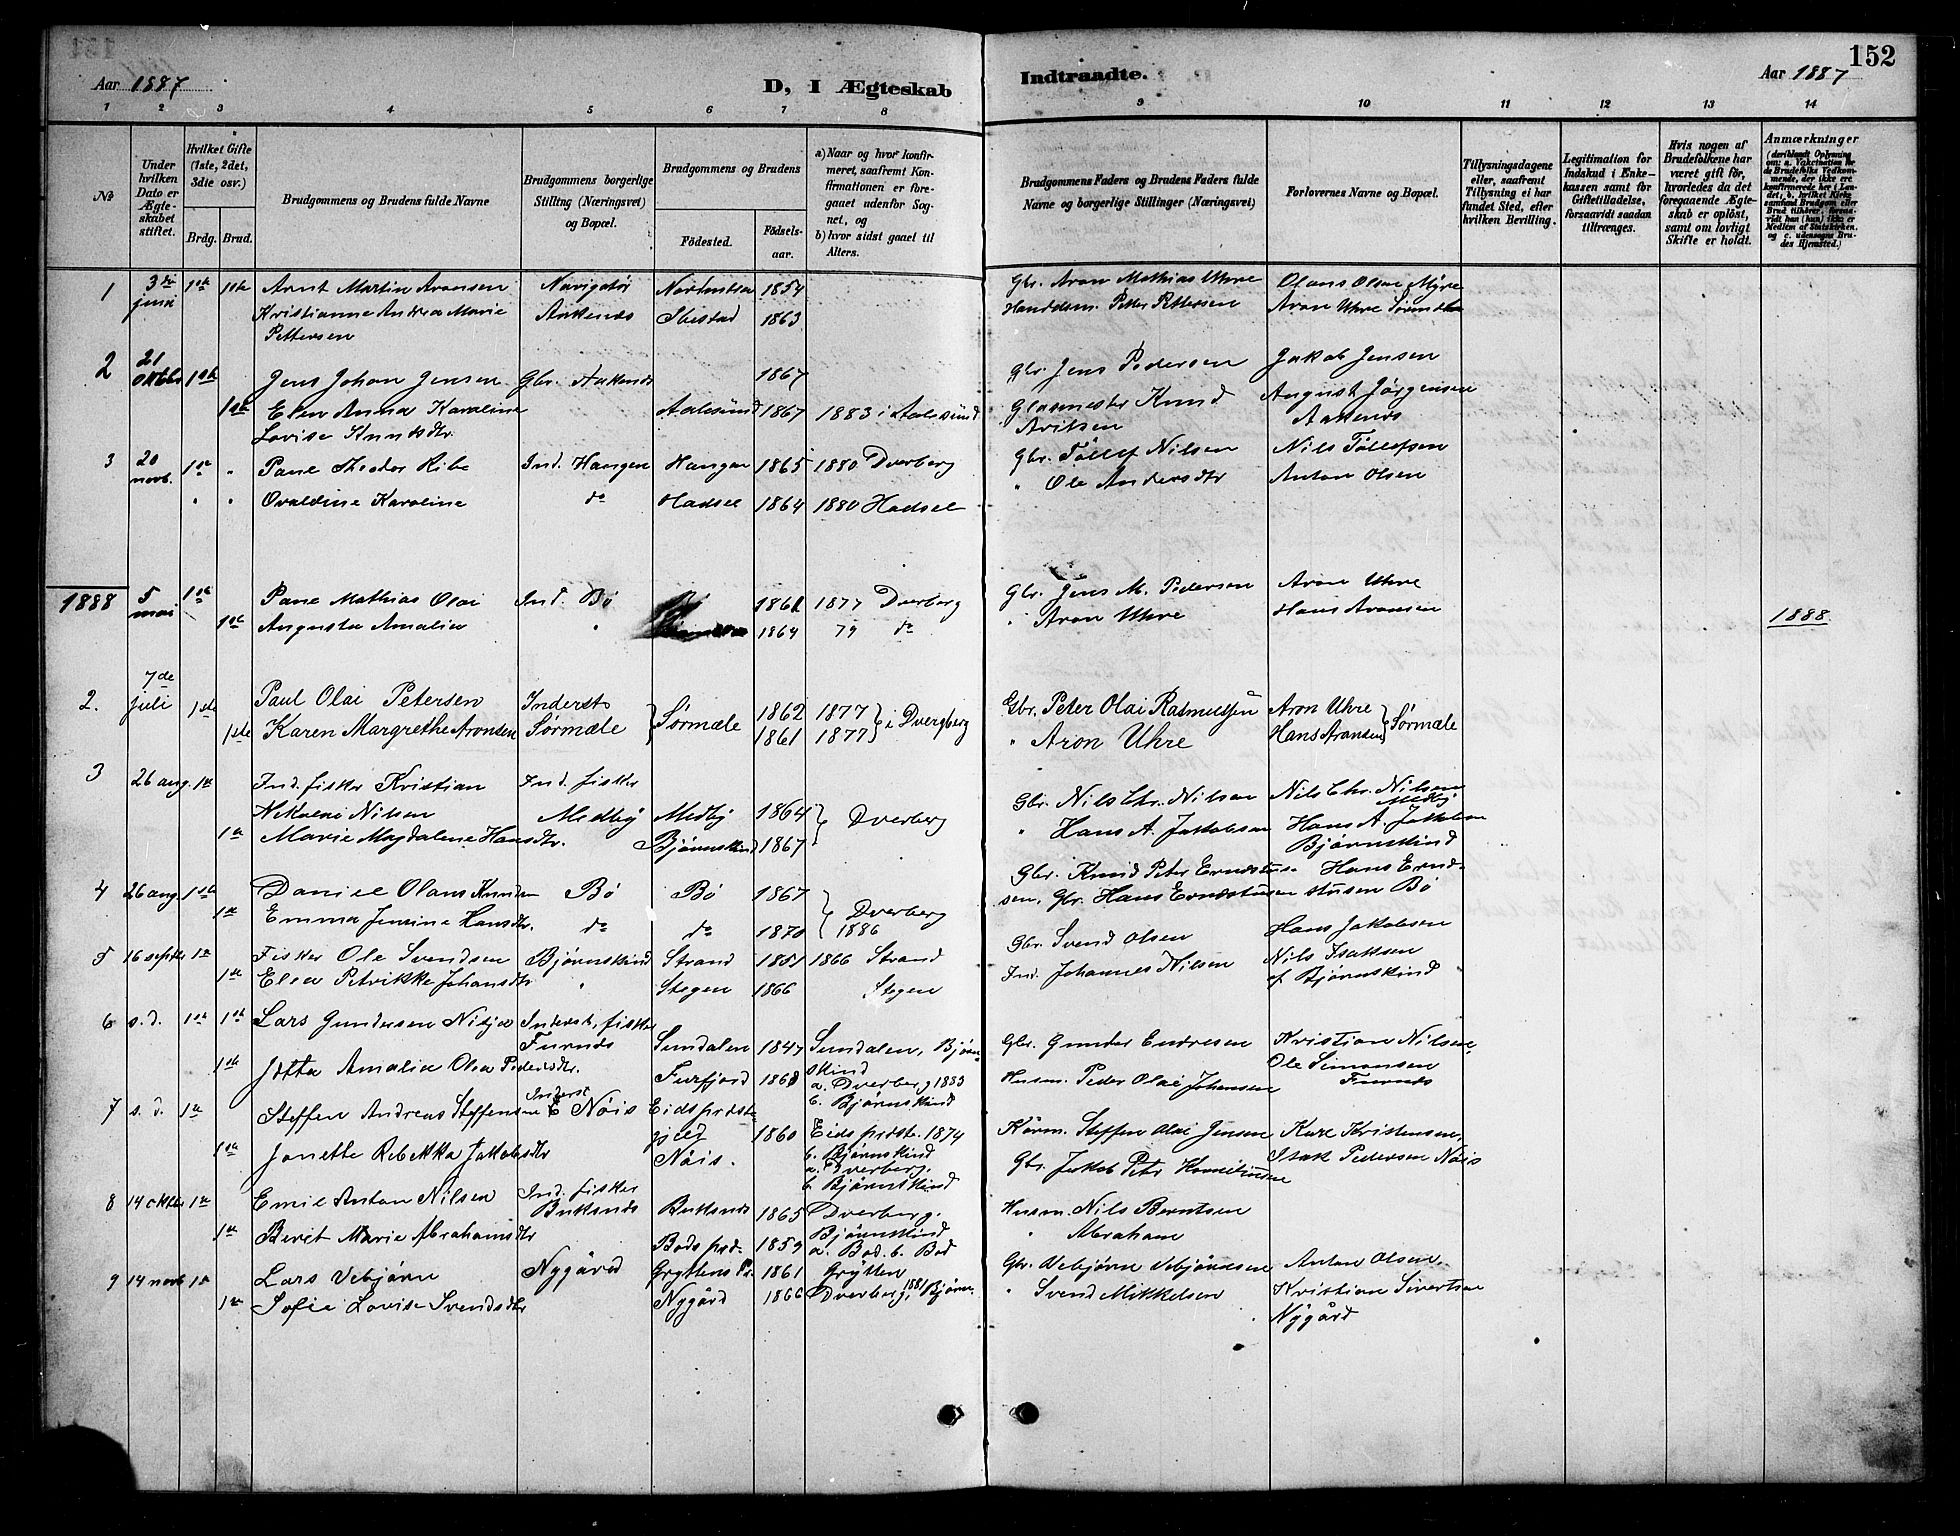 152
Aar 1887
D, I Ægteskab Indtraadte.
Aar 1887
1 2 3 4 5 6 7 8 9 10 11 12 13 14
№
Under hvilken Dato er Ægteskabet stiftet.
Hvilket Gifte (1ste, 2det, 3die osv.)
Brdg. Brud.
Brudgommens og Brudens fulde Navne
Brudgommens borgerlige Stilling (Næringsvei) og Bopæl.
Brudgommens og Brudens
Fødested. Fødselsaar.
a) Naar og hvor konfirmeret, saafremt Konfirmationen er foregaaet udenfor Sognet, og
b) hvor sidst gaaet til Alters.
Brudgommens Faders og Brudens Faders fulde Navne og borgerlige Stillinger (Næringsvei)
Forlovernes Navne og Bopæl.
Tillysningsdagene eller, saafremt Tillysning ei har fundet Sted, efter hvilken Bevilling.
Legitimation for Indskud i Enkekassen samt for Giftetilladelse, forsaavidt saadan tiltrænges.
Hvis nogen af Brudefolkene har været gift før, hvorledes da det foregaaende Ægteskab er opløst, samt om lovligt Skifte er holdt.
Anmærkninger
(deriblandt Oplysning om: a. Vakcination for de Brudefolks Vedkommende, der ikke ere konfirmerede her i Landet; b. hvilket Kirkesamfund Brudgom eller Brud tilhører, forsaavidt han (hun) ikke er Medlem af Statskirken, og c. udensogns Brudes Hjemsted.)
1 3de juni 1ste 1ste Arnt Martin Aronsen Navigatør 1854 Gbr. Aron Mathias Uhre Olaus Olsen Myre
Kristianne Andrea Marie Aakenes Ibestad 1863 Peter Pettersen Aron Uhre
Pettersen
2 21 oktbr 1ste Jens Johan Jensen Gbr. Aakenes 1867 Gbr. Jens Pedersen Jakob Jensen
1ste Elen Anna Karoline Aalesund 1867 1883 i Aalesund Glasmester Knud August Jørgensen
Lovise Knudsdtr. Aakenes
3 20 novb. 1ste " Theodor Ribe Ind. Haugen Haugen 1865 1880 Dverberg Gbr. Tollef Nilsen Nils Tollefsen
" " Ovaldine Karoline do Hadsel 1864 1880 Hadsel " Ole Andersdtr Anton Olsen
1888 5 mai 1ste Mathias Olai Ind. Bø 1861 1877 Dverberg Gbr. Jens M. Pedersen Aron Uhre
1ste Augusta Amalia " 1864 79 do " Aron Uhre Hans Aronsen
1888
2. 7de juli 1ste Paul Olai Petersen Inderst Sørmæle 1862 1877 i Dvergberg Gbr. Peter Olai Rasmussen Aron Uhre Sørmæle
1ste Karen Margrethe Aronsen Sørmæle 1861 1877 " Aron Uhre Hans Aronsen
3 26 aug. 1ste Ind. fisker Kristian Ind. fisker Gbr. Nils Chr. Nilsen Nils Chr. Nilsen
Nikolai Nilsen Medby Medby 1864 Dverberg Medby
1ste Marie Magdalene Hansdtr. Bjørnskind 1867 " Hans A. Jakobsen Hans A. Jakobsen
Bjørnskind
4 26 aug. 1ste Daniel Olaus Knudsen Bø Bø 1867 Dverberg Gbr. Knud Peter Erndstus- Hans Ernd-
1ste Emma Jensine Hansdtr. do do 1870 1886 sen, Gbr. Hans Erndstusen stusen Bø
5 16 septbr 1ste Fisker Ole Svendsen Bjørnskind Strand 1851 1866 Strand Gbr. Svend Olsen Hans Jakobsen
1ste Elea Petrikke Johansdtr " Stegen 1866 Stegen Ind. Johannes Nilsen Nils Isaksen
af Bjørnskind
6 s.d. 1ste 1ste Lars Gundersen Inderst, fisker Gbr. Gunder Endresen Kristian Nilsen,
Furnes Sundalen 1847 Sundalen, Bjørnskind Ole Simonsen
1ste Jetta Amalia Olea Pedersdtr. Furfjord 1868 a. Dverberg 1883 Husm. Peder Olai Johansen Furnes
b. Bjørnskind
7 s.d. 1ste Steffen Andreas Steffensen Inderst Nøis Eids prdste- Steffen Olai Jensen Karl Kristensen,
gjeld 1860 Eids prdste. 1874
1ste Jonette Rebekka Jakobsdtr Nøis. b. Bjørnskind Gbr. Jakob Peter Korneliussen Isak Pedersen Nøis
a. Dverberg.
b. Bjørnskind
8 14 oktbr 1ste Emil Anton Nilsen Ind. fisker Buksnes 1865 Dverberg. Husm. Nils Berntsen
Buksnes Bjørnskind
1ste Beret Marie Abrahamsdtr Bods prd. 1859 a. Bod. b. Bod " Abraham
9 14 novb 1ste Lars Vebjørn Nygård Gryttens Pr. 1861 Grytten Gbr. Vebjørn Vebjørnsen Anton Olsen,
1ste Sofie Lovise Svendsdtr Nygård 1866 Dverberg, 1881 Bjørn. " Svend Mikkelsen Kristian Sivertsen
Nygård